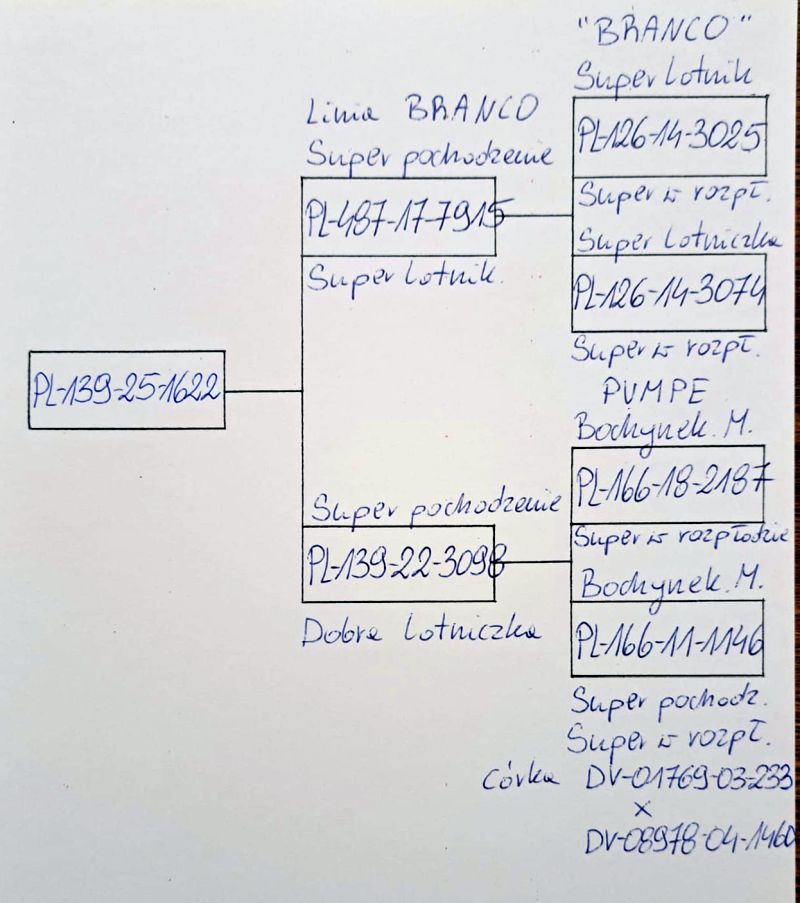 "BRANCO"
Super Lotnik
PL-126-14-3025
Super w rozpł.
Linia BRANCO
Super pochodzenie
PL-487-17-7915
Super Lotnik.
Super Lotniczka
PL-126-14-3074
Super w rozpł.
PL-139-25-1622
PUMPE
Bochynek. M.
PL-166-18-2187
Super w rozpłodzie
Super pochodzenie
PL-139-22-3098
Dobra Lotniczka
Bochynek. M.
PL-166-11-1146
Super pochodz.
Super w rozpł.
córka DV-01769-03-233
x
DV-08978-04-1460